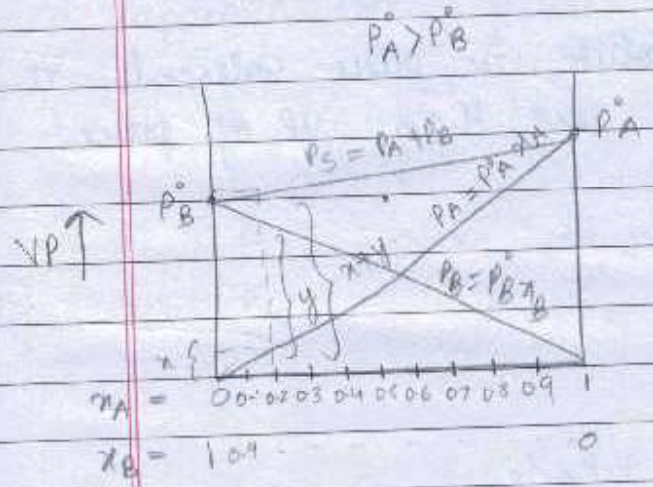 P°A > P°B
PS = PA + PB
P°A
PA = P°A xA
P°B
VP ↑
x+y
y
PB = P°B xB
x
xA = 0 0.1 0.2 0.3 0.4 0.5 0.6 0.7 0.8 0.9 1
xB = 1 0.9 0